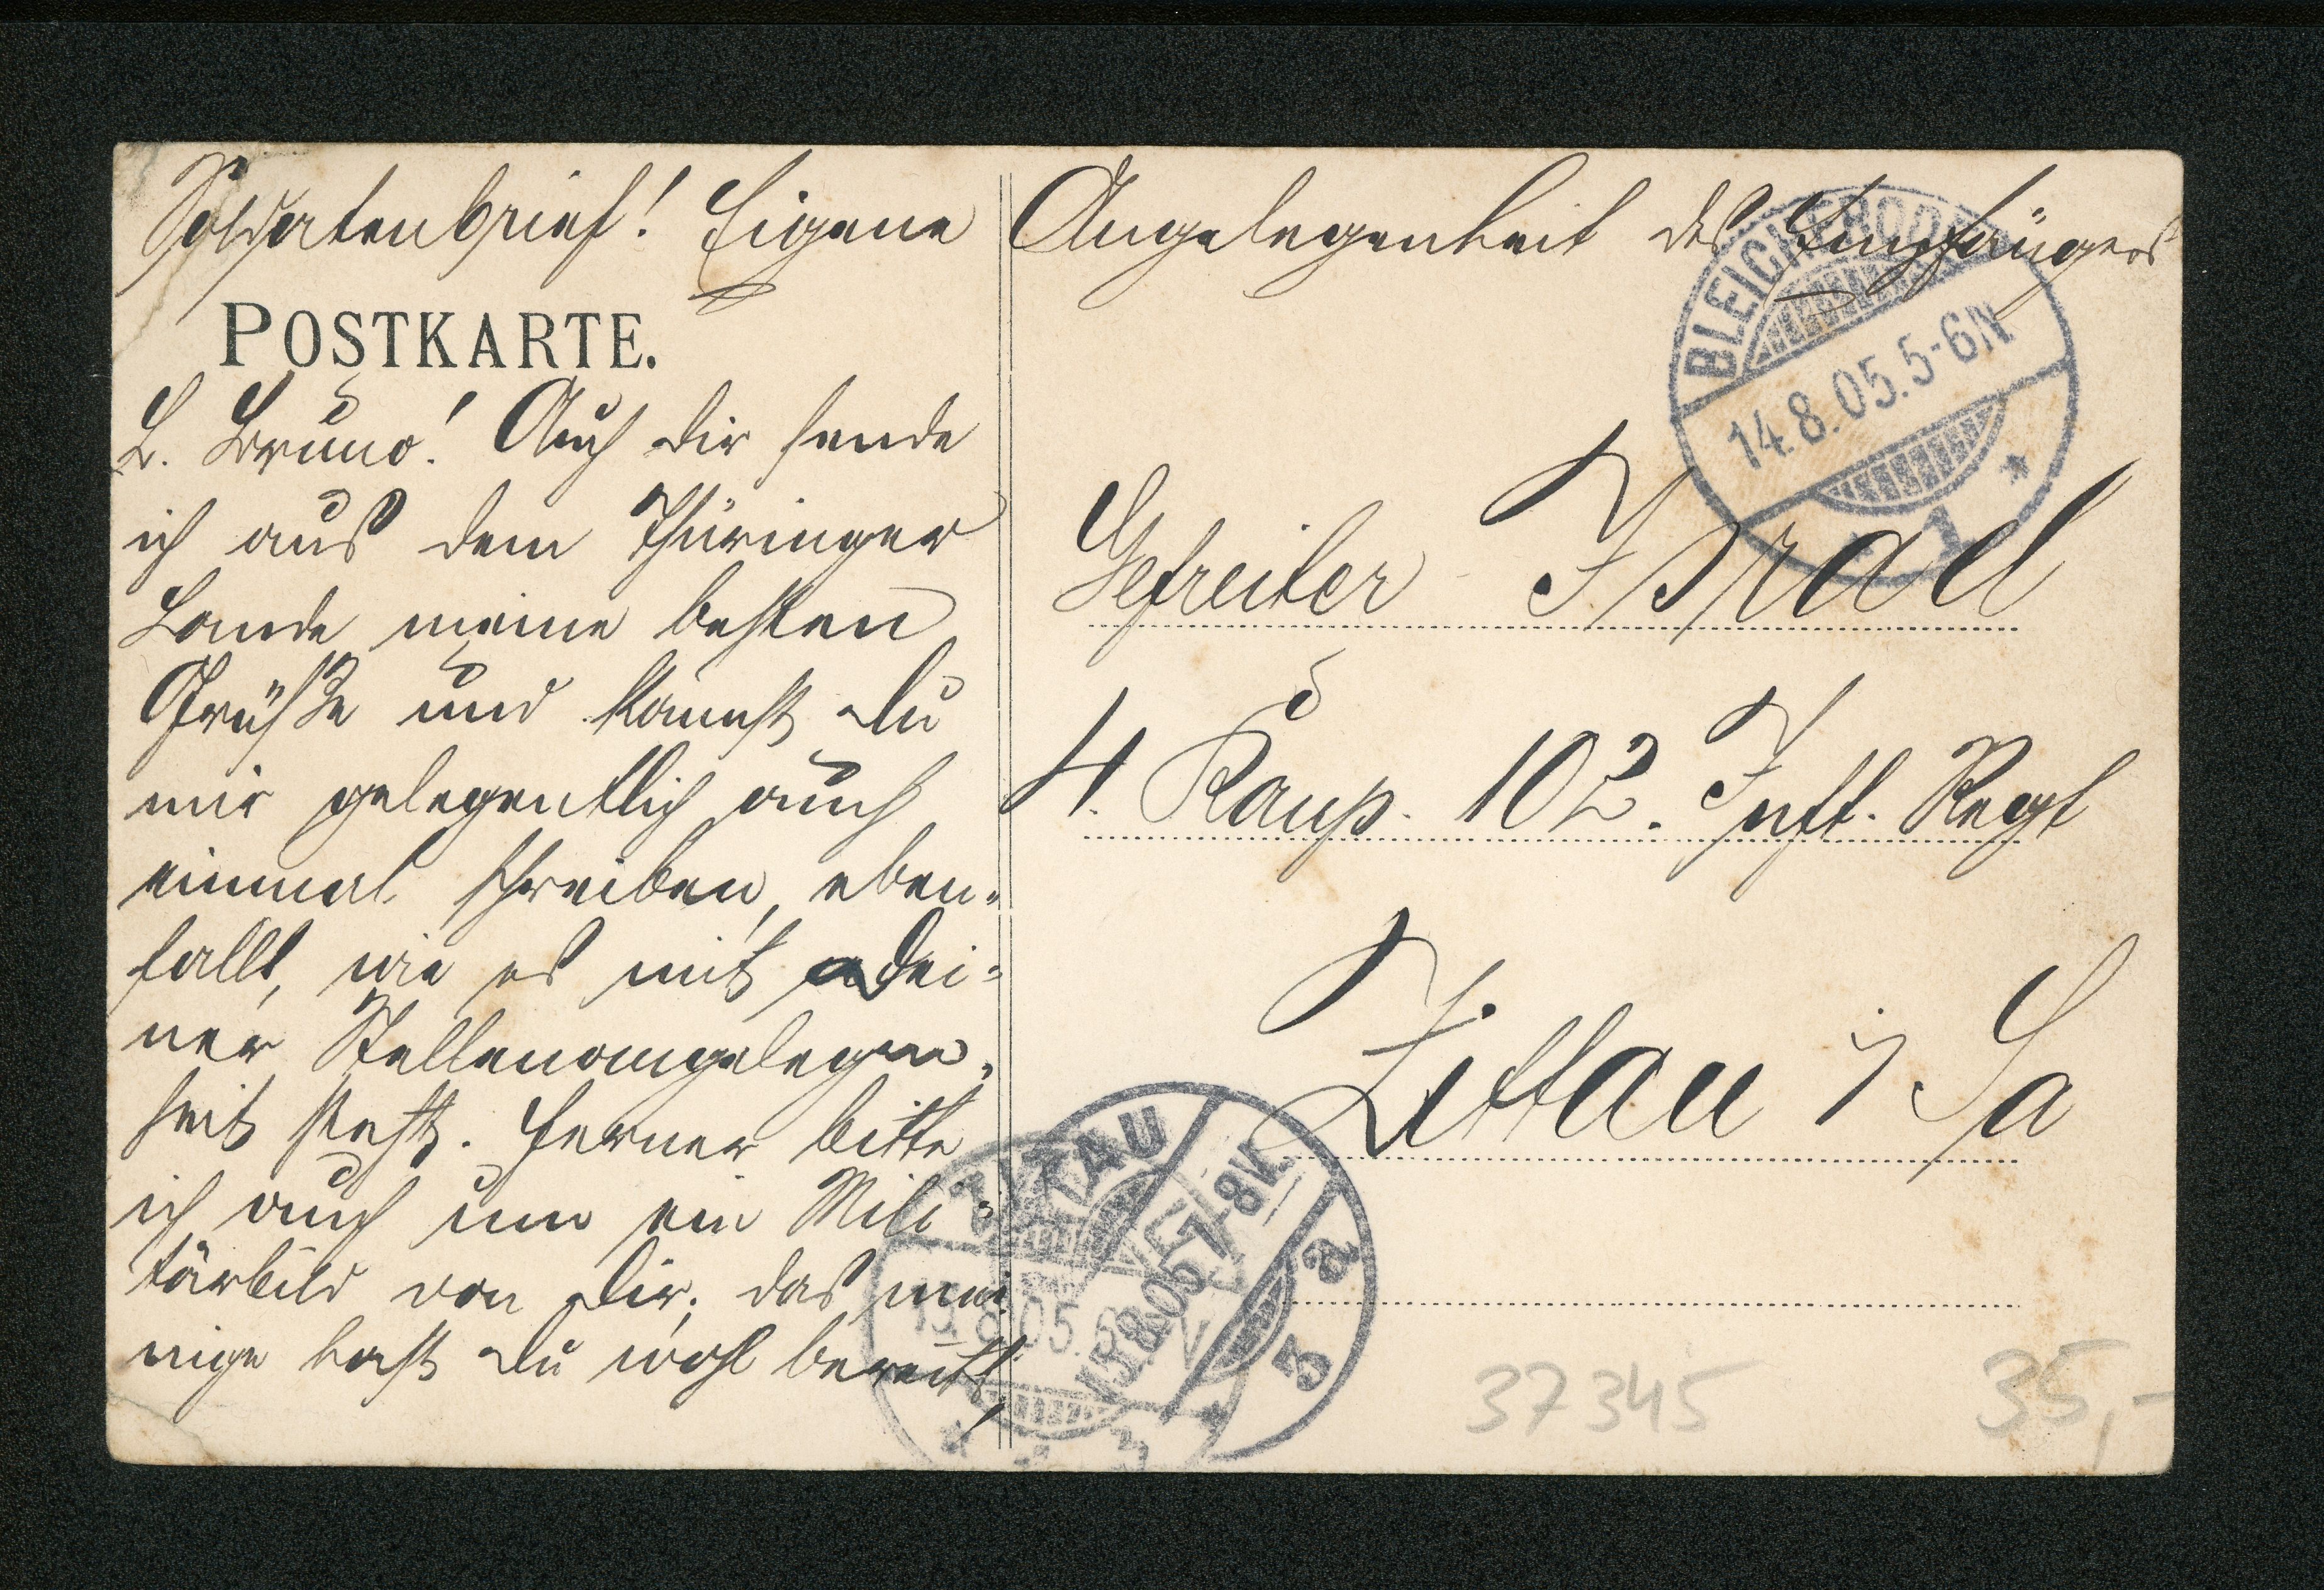 Soldatenbrief! Eigene Angelegenheit des Empfängers
POSTKARTE.
L. Bruno! Auch dir sende
ich aus dem Thüringer
Lande meine besten
Grüße und kannst du
mir gelegentlich auch
einmal schreiben, eben-
falls, wie es mit Dei-
ner Stellenangelegen-
heit steht. Ferner bitte
ich auch um ein Mili-
tärbild von Dir, das mei-
nige hast du wohl bereits,
BLEICHERODE
14.8.05.5-6N
1
Gefreiter Israel
4. Komp. 102. Inft. Regt
Zittau i/Sa
ZITTAU
15.8.05.7-8V.
3a
37345
35,-